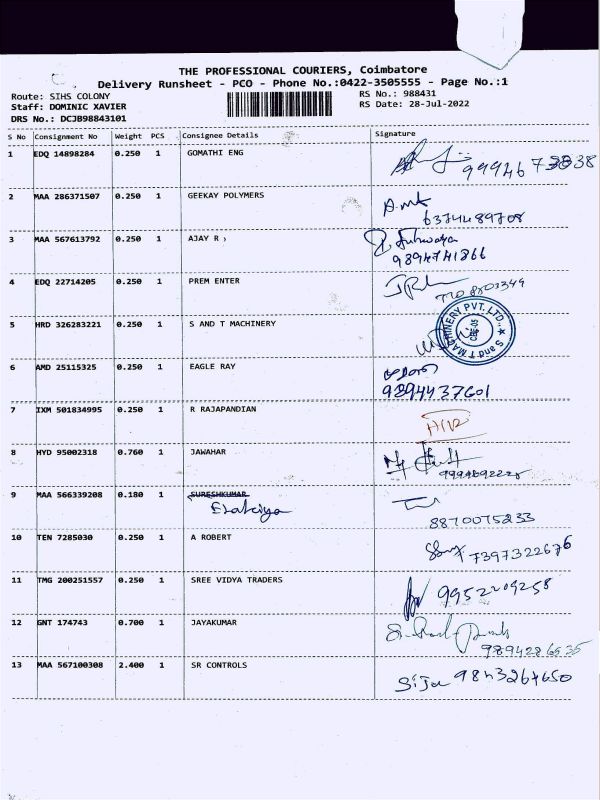 THE PROFESSIONAL COURIERS, Coimbatore
Delivery Runsheet - PCO - Phone No.:0422-3505555 - Page No.:1
Route: SIHS COLONY
RS No.: 988431
Staff: DOMINIC XAVIER
RS Date: 28-Jul-2022
DRS No.: DCJB98843101
S No Consignment No Weight PCS Consignee Details Signature
1 EDQ 14898284 0.250 1 GOMATHI ENG
2 MAA 286371507 0.250 1 GEEKAY POLYMERS
6374489708
3 MAA 567613792 0.250 1 AJAY R ,
9894741866
4 EDQ 22714205 0.250 1 PREM ENTER
5 HRD 326283221 0.250 1 S AND T MACHINERY
S and T MACHINERY PVT. LTD.,
CBE-05
6 AMD 25115325 0.250 1 EAGLE RAY
9894437601
7 IXM 501834995 0.250 1 R RAJAPANDIAN
8 HYD 95002318 0.760 1 JAWAHAR
9 MAA 566339208 0.180 1 SURESHKUMAR
8870075233
10 TEN 7285030 0.250 1 A ROBERT
7397322676
11 TMG 200251557 0.250 1 SREE VIDYA TRADERS
9952209258
12 GNT 174743 0.700 1 JAYAKUMAR
9894286535
13 MAA 567100308 2.400 1 SR CONTROLS
9843267650